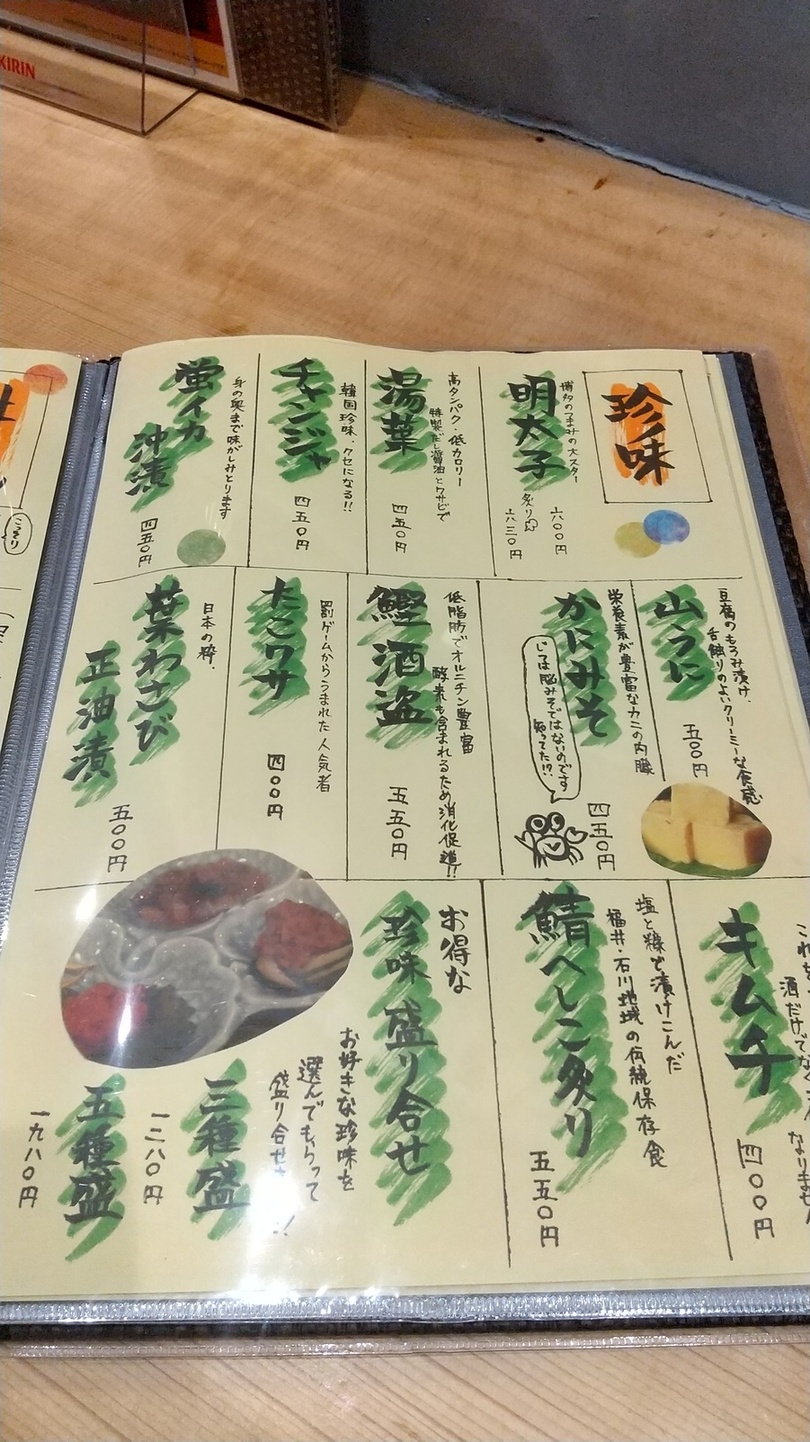 KIRIN
珍味
博多のつまみの大スター
明太子
六〇〇円
炙り
六三〇円
高タンパク・低カロリー
特製だし醤油とワサビで
湯葉
四五〇円
韓国珍味・クセになる!!
チャンジャ
四五〇円
身の奥まで味がしみとります
蛍イカ
沖漬
四五〇円
豆腐のもろみ漬け、
舌触りのよいクリーミーな食感
山うに
五〇〇円
栄養素が豊富なカニの内臓
かにみそ
じつは脳みそではないのです
知ってた!?
四五〇円
低脂肪でオルニチン豊富
酵素も含まれるため消化促進!!
鰹酒盗
五五〇円
罰ゲームからうまれた人気者
たこワサ
四〇〇円
日本の粋、
葉わさび
正油漬
五〇〇円
キムチ
四〇〇円
塩と糠で漬けこんだ
福井・石川地域の伝統保存食
鯖へしこ炙り
五五〇円
お得な
珍味盛り合せ
お好きな珍味を
選んでもらって
盛り合せ
三種盛
一二八〇円
五種盛
一九八〇円
こっきり